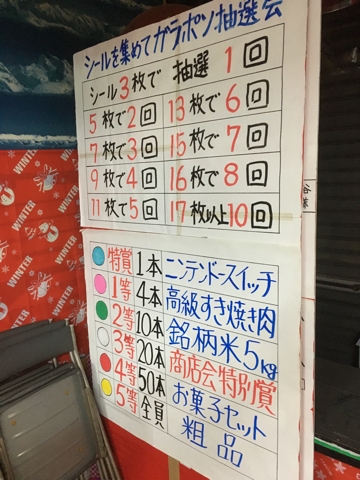 シールを集めてガラポン抽選会
シール3枚で 抽選 1回
5枚で2回 13枚で6回
7枚で3回 15枚で7回
9枚で4回 16枚で8回
11枚で5回 17枚以上10回
特賞 1本 ニンテンドースイッチ
1等 4本 高級すき焼き肉
2等 10本 銘柄米5kg
3等 20本 商店会特別賞
4等 50本 お菓子セット
5等 全員 粗品
WINTER
WINTER
WINTER
WINTER